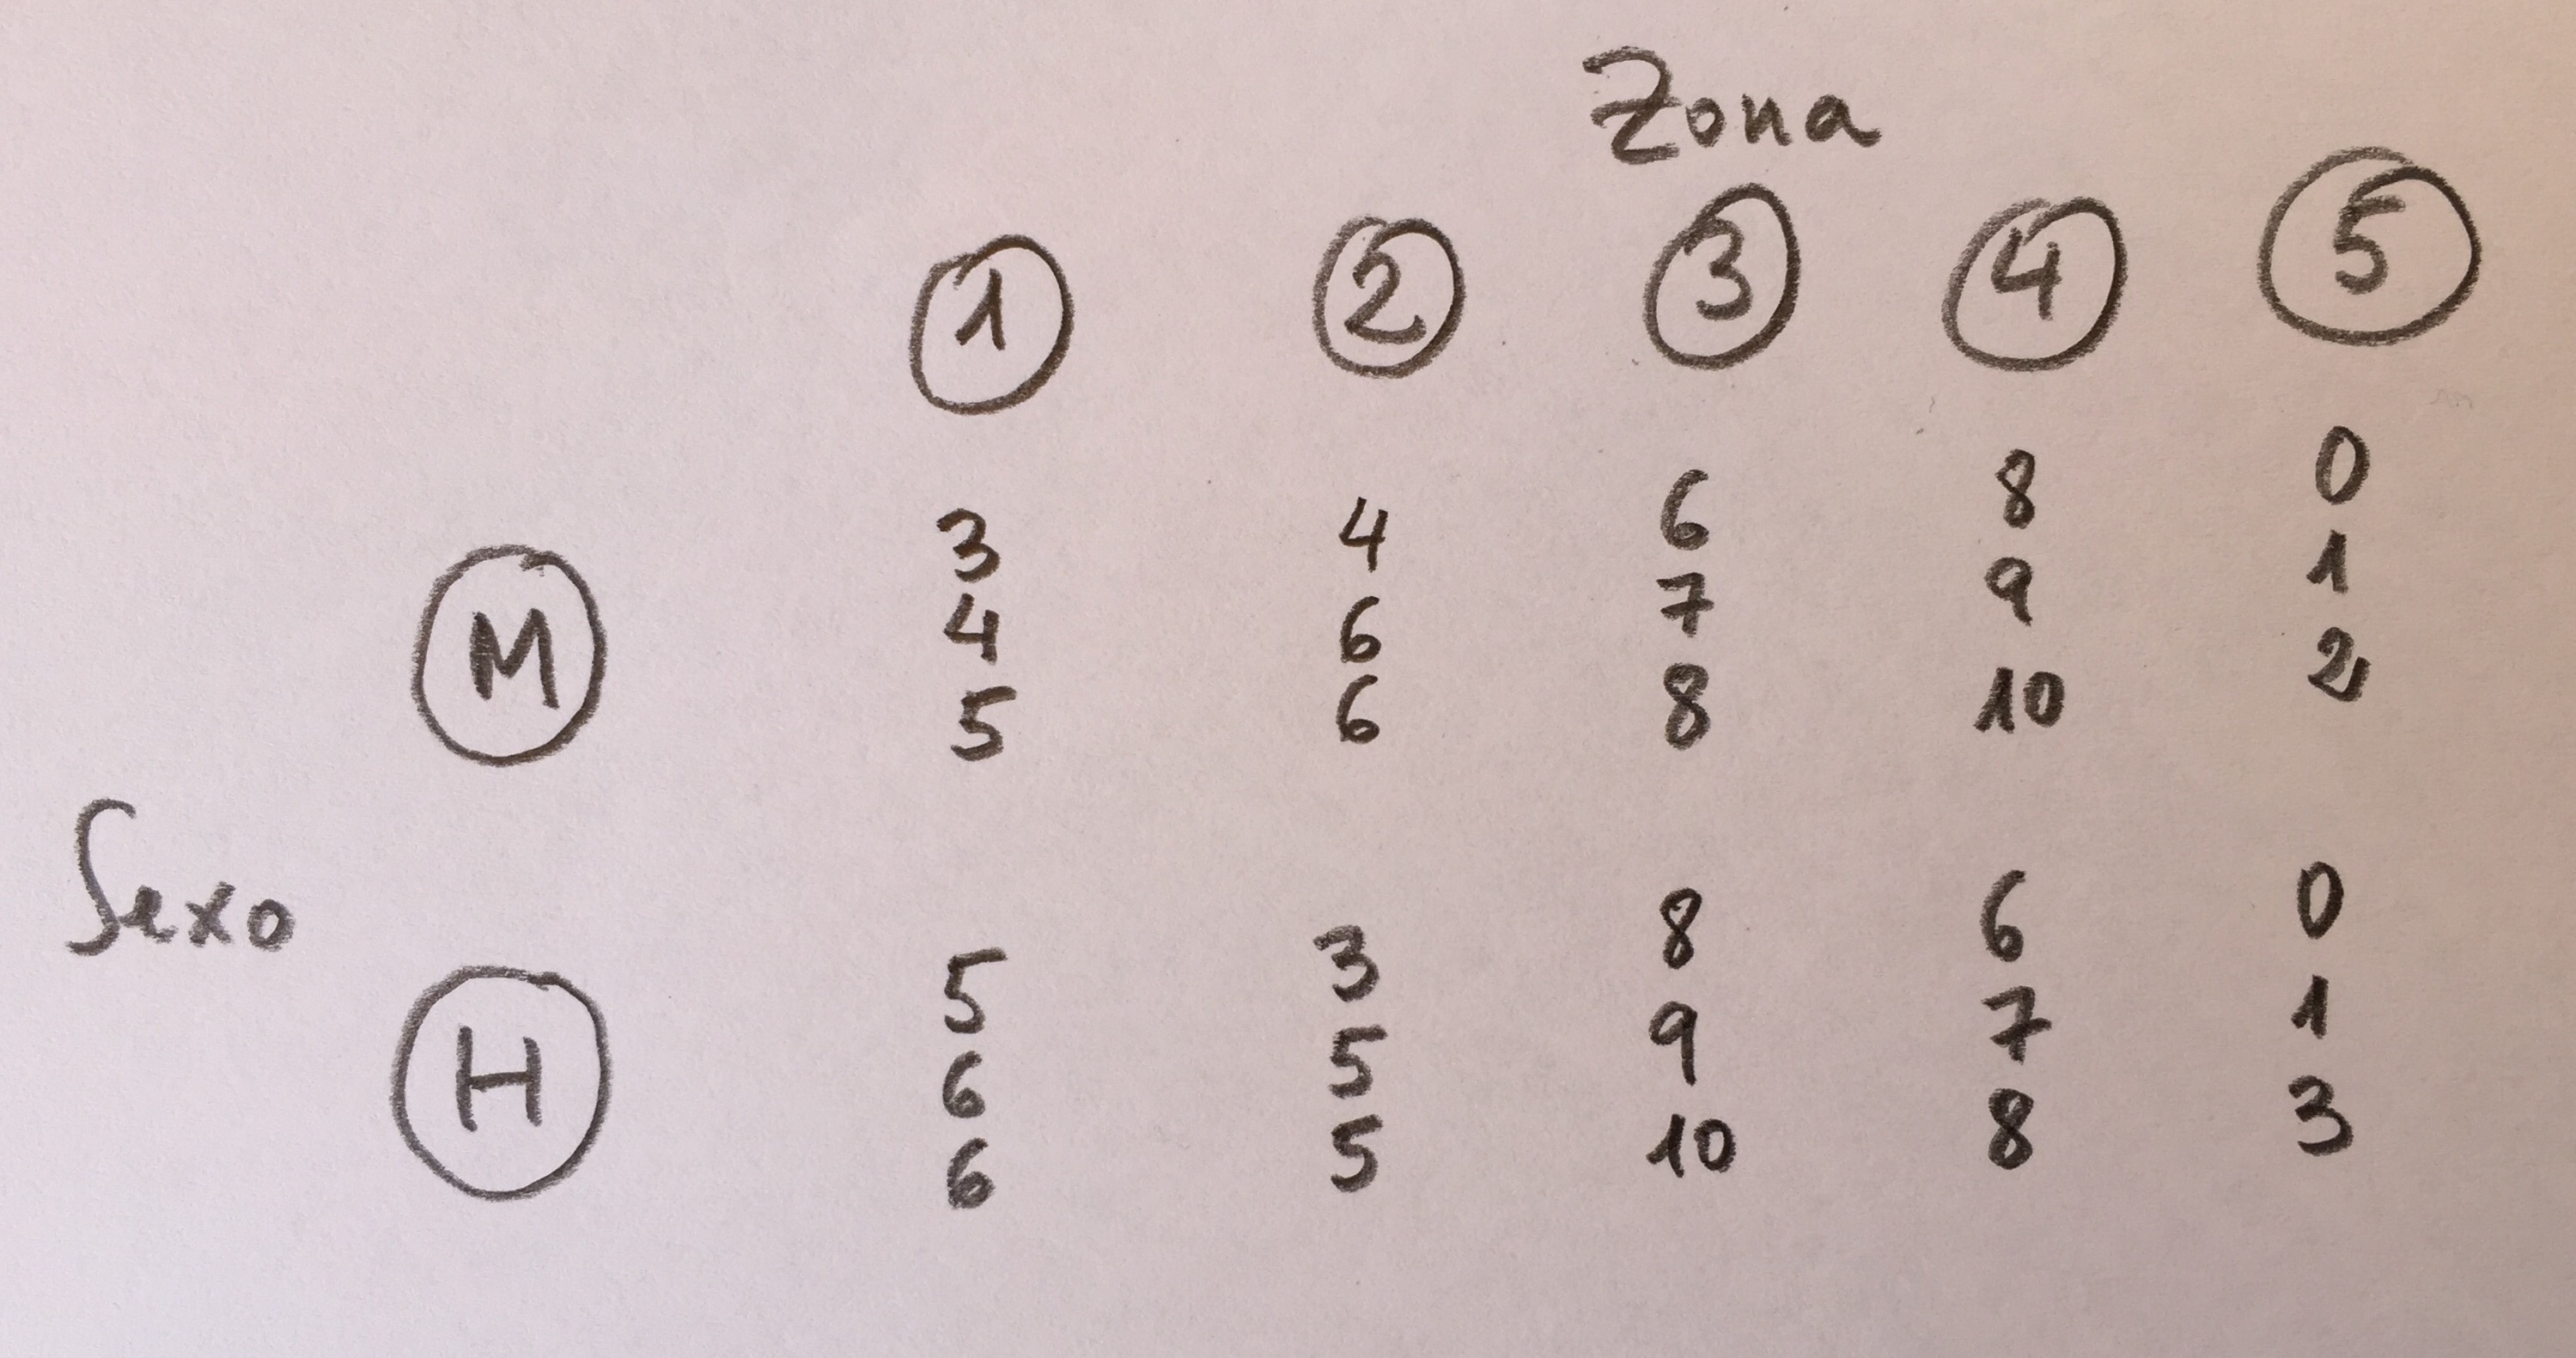 Zona
1 2 3 4 5
3 4 6 8 0
M 4 6 7 9 1
5 6 8 10 2
Sexo
5 3 8 6 0
H 6 5 9 7 1
6 5 10 8 3